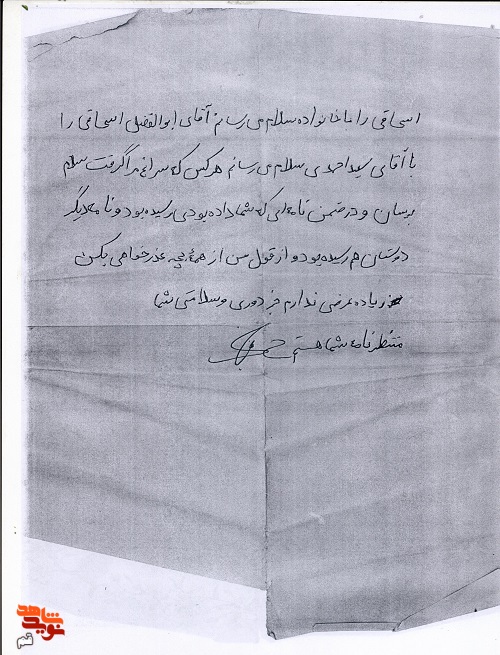 اسحاقی را با خانواده سلام می رسانم آقای ابوالفضل اسحاقی را
با آقای سید احمدی سلام می رسانم هرکس که سراغ مرا گرفت سلام
برسان و در ضمن نامه ای که شما داده بودی رسیده بود و نامه دیگر
دوستان هم رسیده بود و از قول من از همه بچه عذرخواهی بکن
زیاده عرضی ندارم جز دوری و سلامتی شما
منتظر نامه شما هستم
نوید شاهد
قم